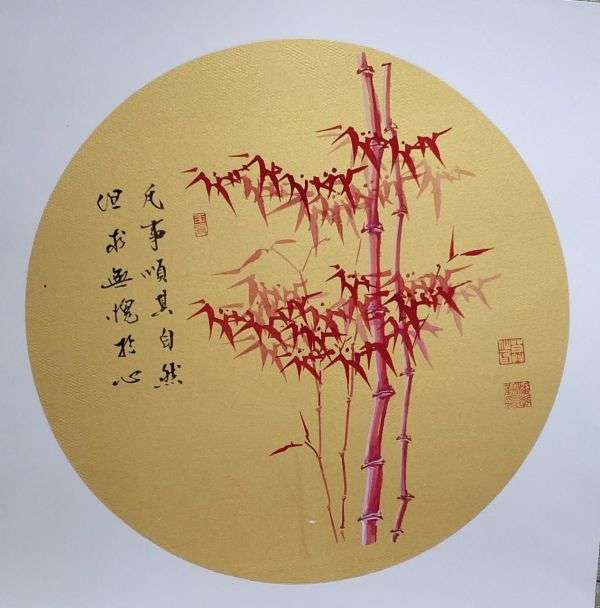 凡事順其自然
但求無愧於心